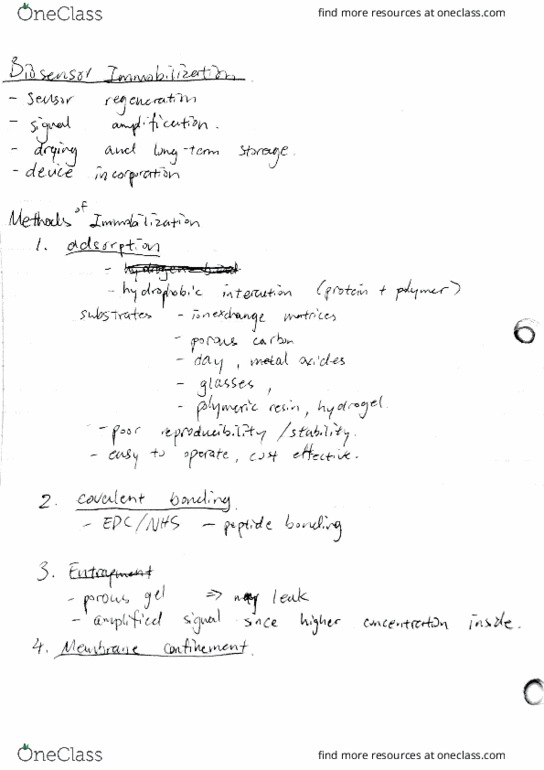 OneClass find more resources at oneclass.com
Biosensor Immobilization
- sensor regeneration
- signal amplification.
- drying and long-term storage.
- device incorporation
Methods of Immobilization
1. adsorption
- hydrophobic interaction (protein + polymer)
substrates - ion exchange matrices
- porous carbon
- clay, metal oxides
- glasses,
- polymeric resin, hydrogel.
- poor reproducibility / stability.
- easy to operate, cost effective.
2. covalent bonding.
- EDC/NHS - peptide bonding
3. Entrapment
- porous gel ⇒ may leak
- amplified signal since higher concentration inside.
4. Membrane confinement.
OneClass find more resources at oneclass.com